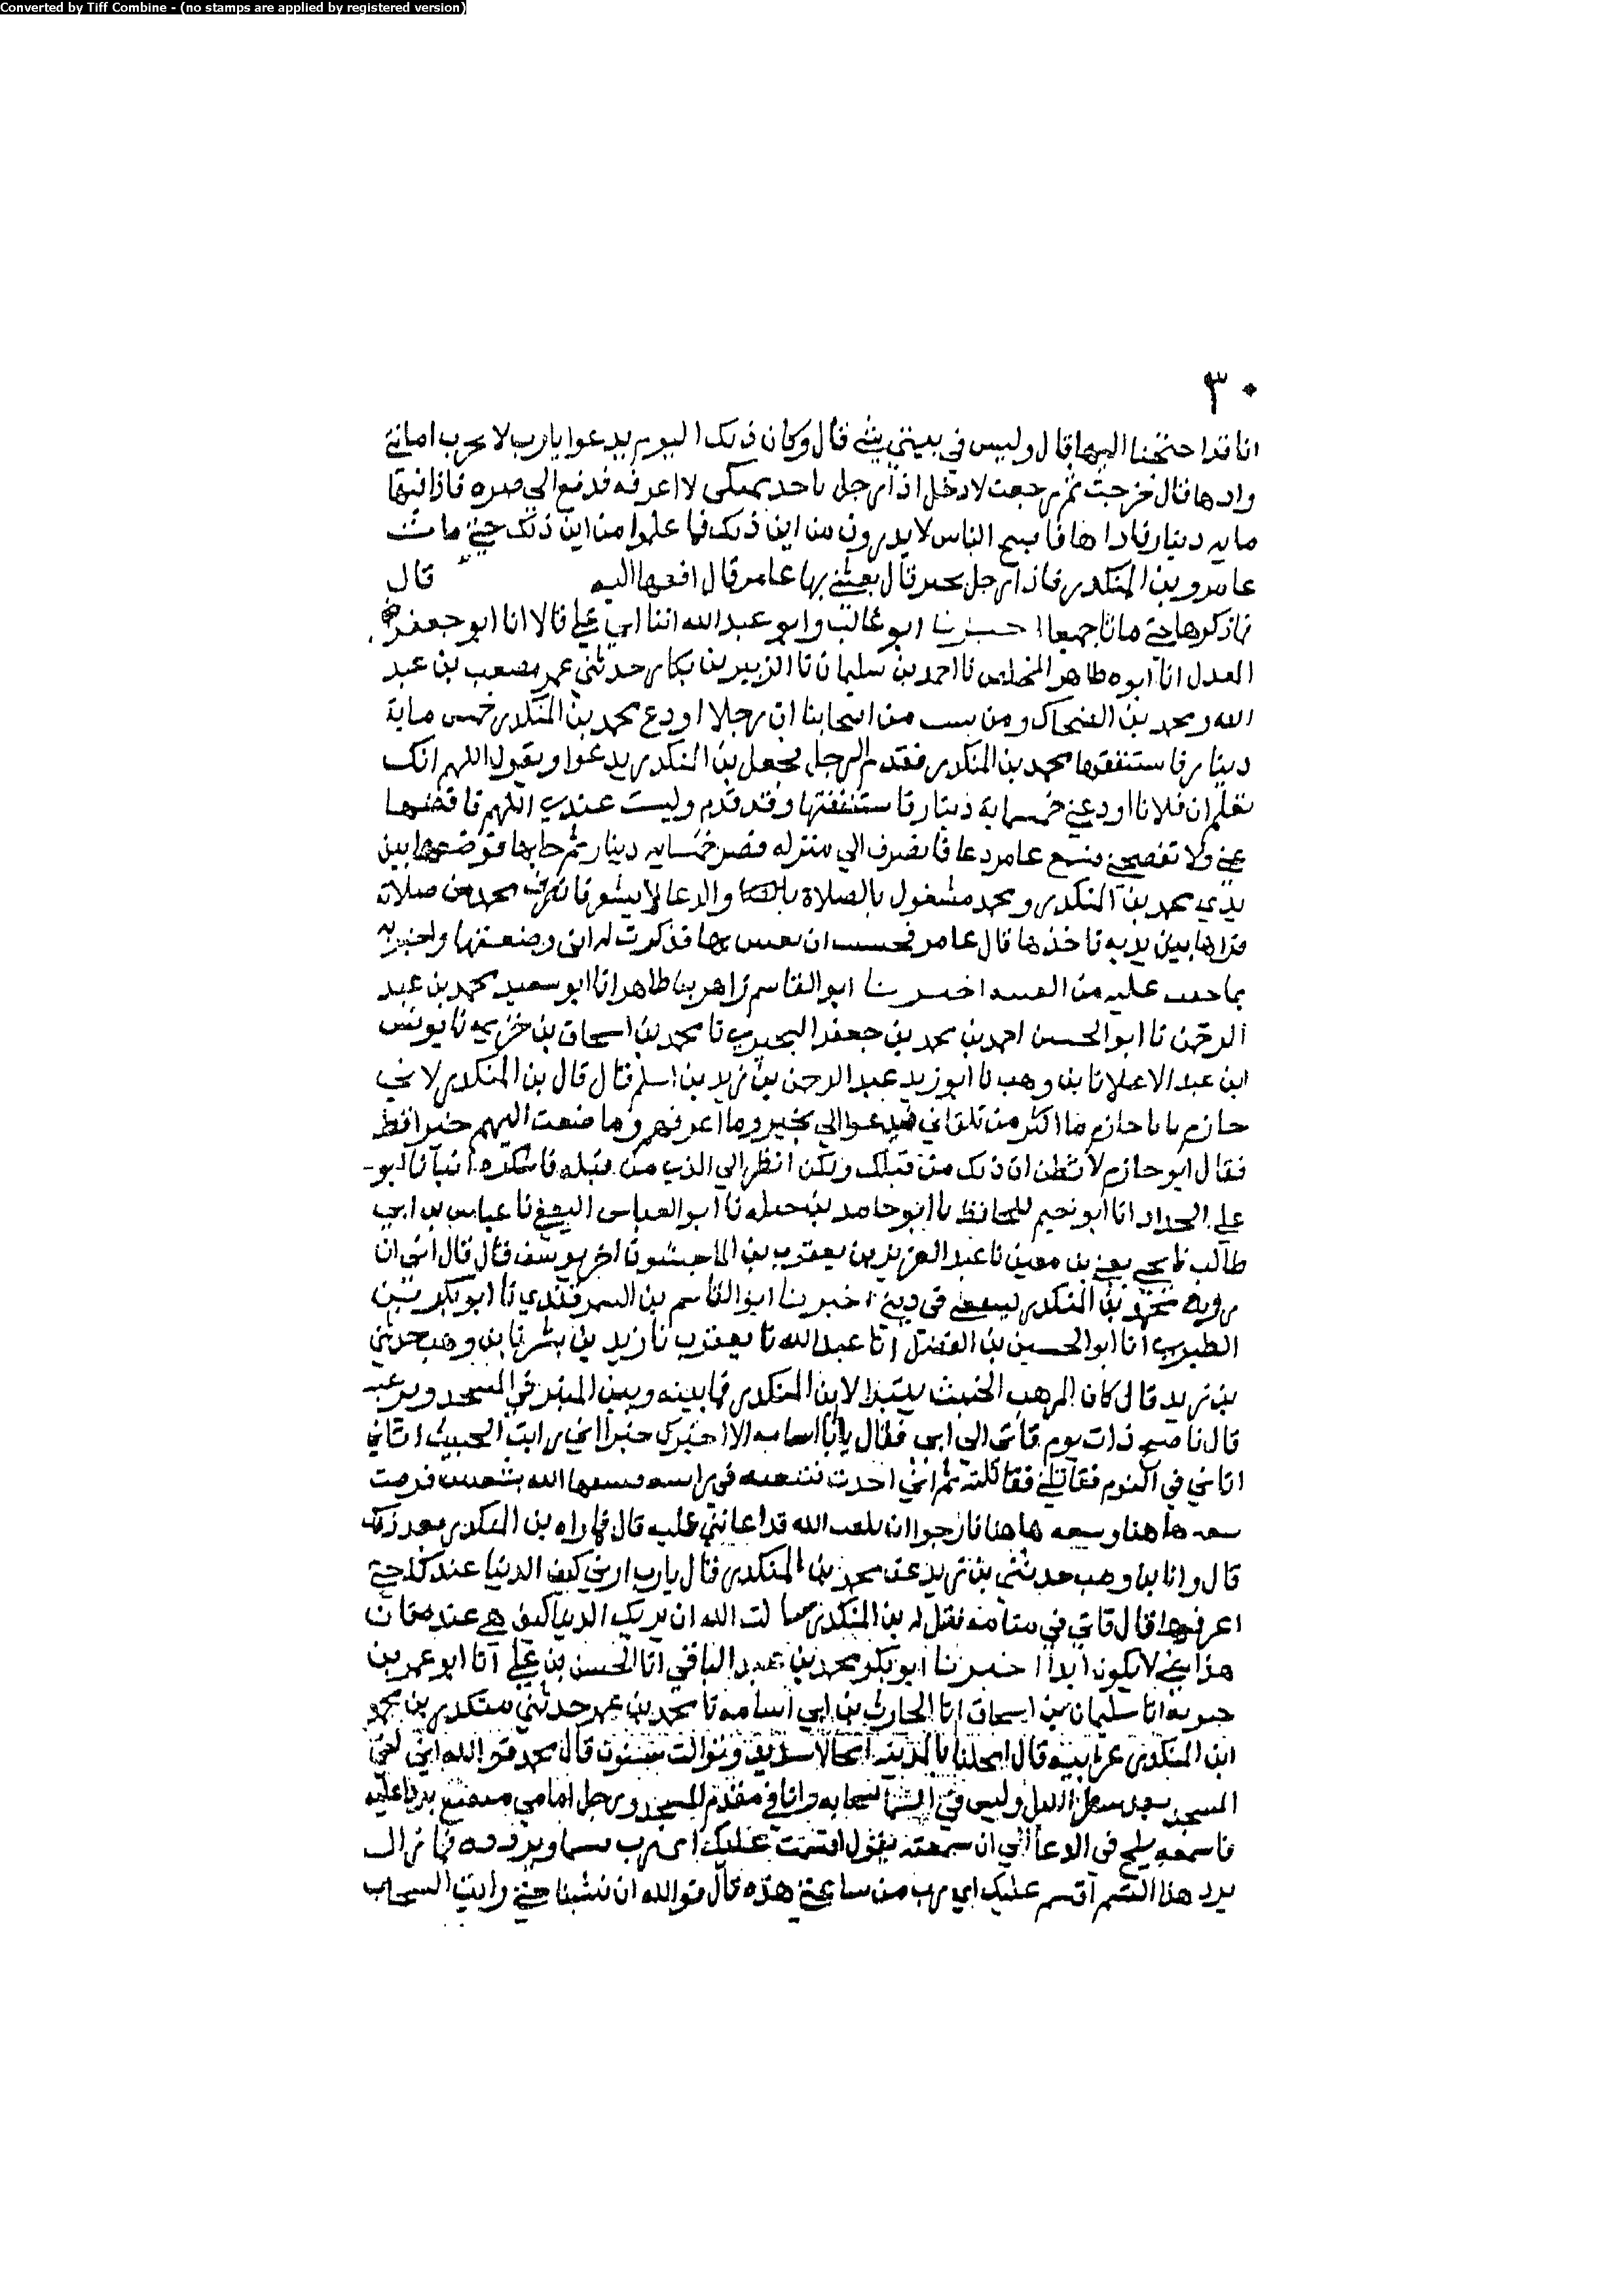 Converted by Tiff Combine - (no stamps are applied by registered version)
٣٠
انا قد احتجنا اليها قال وليس في بيتي شي قال وكان ذلك اليوم يدعوا يا رب لا تخرب امانتي
وادها قال فخرجت ثم رجعت لادخل اذا رجل ياخذ بمنكبي لا اعرفه فدفع الي صره فاذا فيها
مايه دينار فاداها فاصبح الناس لا يدرون من اين ذلك فما علموا من اين ذلك حتى مات
عامر وبن المنكدر فاذا رجل يخبر قال بعثني بها عامر قال ادفعها اليه قال
فما ذكرها حتى ماتا جميعا اخبرنا ابو غالب وابو عبد الله ابنا ابي علي قالا انا ابو جعفر
العدل انا ابو طاهر المخلص نا احمد بن سليمان نا الزبير بن بكار حدثني عمي مصعب بن عبد
الله ومحمد بن الضحاك ومن من اصحابنا ان رجلا اودع محمد بن المنكدر خمس ماية
دينار فاستنفقها محمد بن المنكدر فقدم الرجل فجعل بن المنكدر يدعوا ويقول اللهم انك
تعلم ان فلانا اودعني خمسماية دينار فاستنفقتها وقد قدم وليست عندي اللهم فاقضها
عني ولا تفضحني فسمع عامر دعاه فانصرف الي منزله فصر خمسمايه دينار ثم جا بها فوضعها بين
يدي محمد بن المنكدر ومحمد مشغول بالصلاة والدعا لا يشعر فانصرف محمد من صلاته
فراها بين يديه فاخذها قال عامر فخشيت ان بها فذكرت له اني وضعتها واخبرته
بما عليه من اخبرنا ابو القاسم زاهر بن طاهر انا ابو سعيد محمد بن عبد
الرحمن نا ابو الحسن احمد بن محمد بن جعفر البحيري نا محمد بن اسحاق بن خزيمه نا يونس
ابن عبد الاعلا نا بن وهب نا ابو زيد عبد الرحمن بن زيد بن اسلم قال قال بن المنكدر لابي
حازم يا با حازم ما اكثر من تلقاني فيدعوا لي بخير وما اعرفهم وما صنعت اليهم خيرا قط
فقال ابو حازم لا تظن ان ذلك من قبلك ولكن انظر الي الذي من قبله فاشكره انبانا ابو
علي الحداد انا ابو نعيم الحافظ نا ابو حامد بن جبله نا ابو العباس نا عباس بن ابي
طالب نا يحي يعني بن معين نا عبد العزيز بن يعقوب بن الماجشون اخو يوسف قال قال ابي ان
رويه محمد بن المنكدر لينفعني في ديني اخبرنا ابو القاسم بن السمرقندي نا ابو بكر بن
الطبري انا ابو الحسين بن الفضل انا عبد الله نا يعقوب نا زيد بن بشر نا بن وهب حدثني
بن زيد قال كان المرهب الخبيث يتبدا لابن المنكدر فيما بينه وبين المنبر في المسجد
قال فاصبح ذات يوم فاتى الي ابي فقال يا با اسامه الا اخبرك خبرا اني رايت الخبيث اتاني
اتاني في النوم فقاتلني فقاتلته ثم اني احدث في راسه الله
ها هنا وسعه ها هنا فارجوا ان يكون الله قد اعانني عليه قال فما راه بن المنكدر بعد ذلك
قال وانا بن وهب حدثني بن زيد عن محمد بن المنكدر قال يا رب ارني كيف الدنيا عندك حتى
اعرفها قال فاتي في منامه فقيل له بن المنكدر سالت الله ان يريك الدنيا كيف هي عنده فان
هذا يعني لا يكون ابدا اخبرنا ابو بكر محمد بن عبد الباقي انا الحسن بن علي انا ابو عمر بن
حيويه انا سليمان بن اسحاق انا الحارث بن ابي اسامه نا محمد بن عمر حدثني منكدر بن محمد
ابن المنكدر عن ابيه قال امحلنا بالمدينه امحالا شديدا وتوالت سنون قال محمد فوالله اني لفي
المسجد بعد شطر الليل وليس في السما سحابه وانا في مقدم المسجد ورجل امامي متقنع بردا عليه
فاسمعه يلح في الدعا الي ان سمعته يقول اقسمت عليك اي رب قسما ويردده فما زال
يردد هذا القسم اقسم عليك اي رب من ساعتي هذه قال فوالله ان نشبنا حتى رايت السحاب